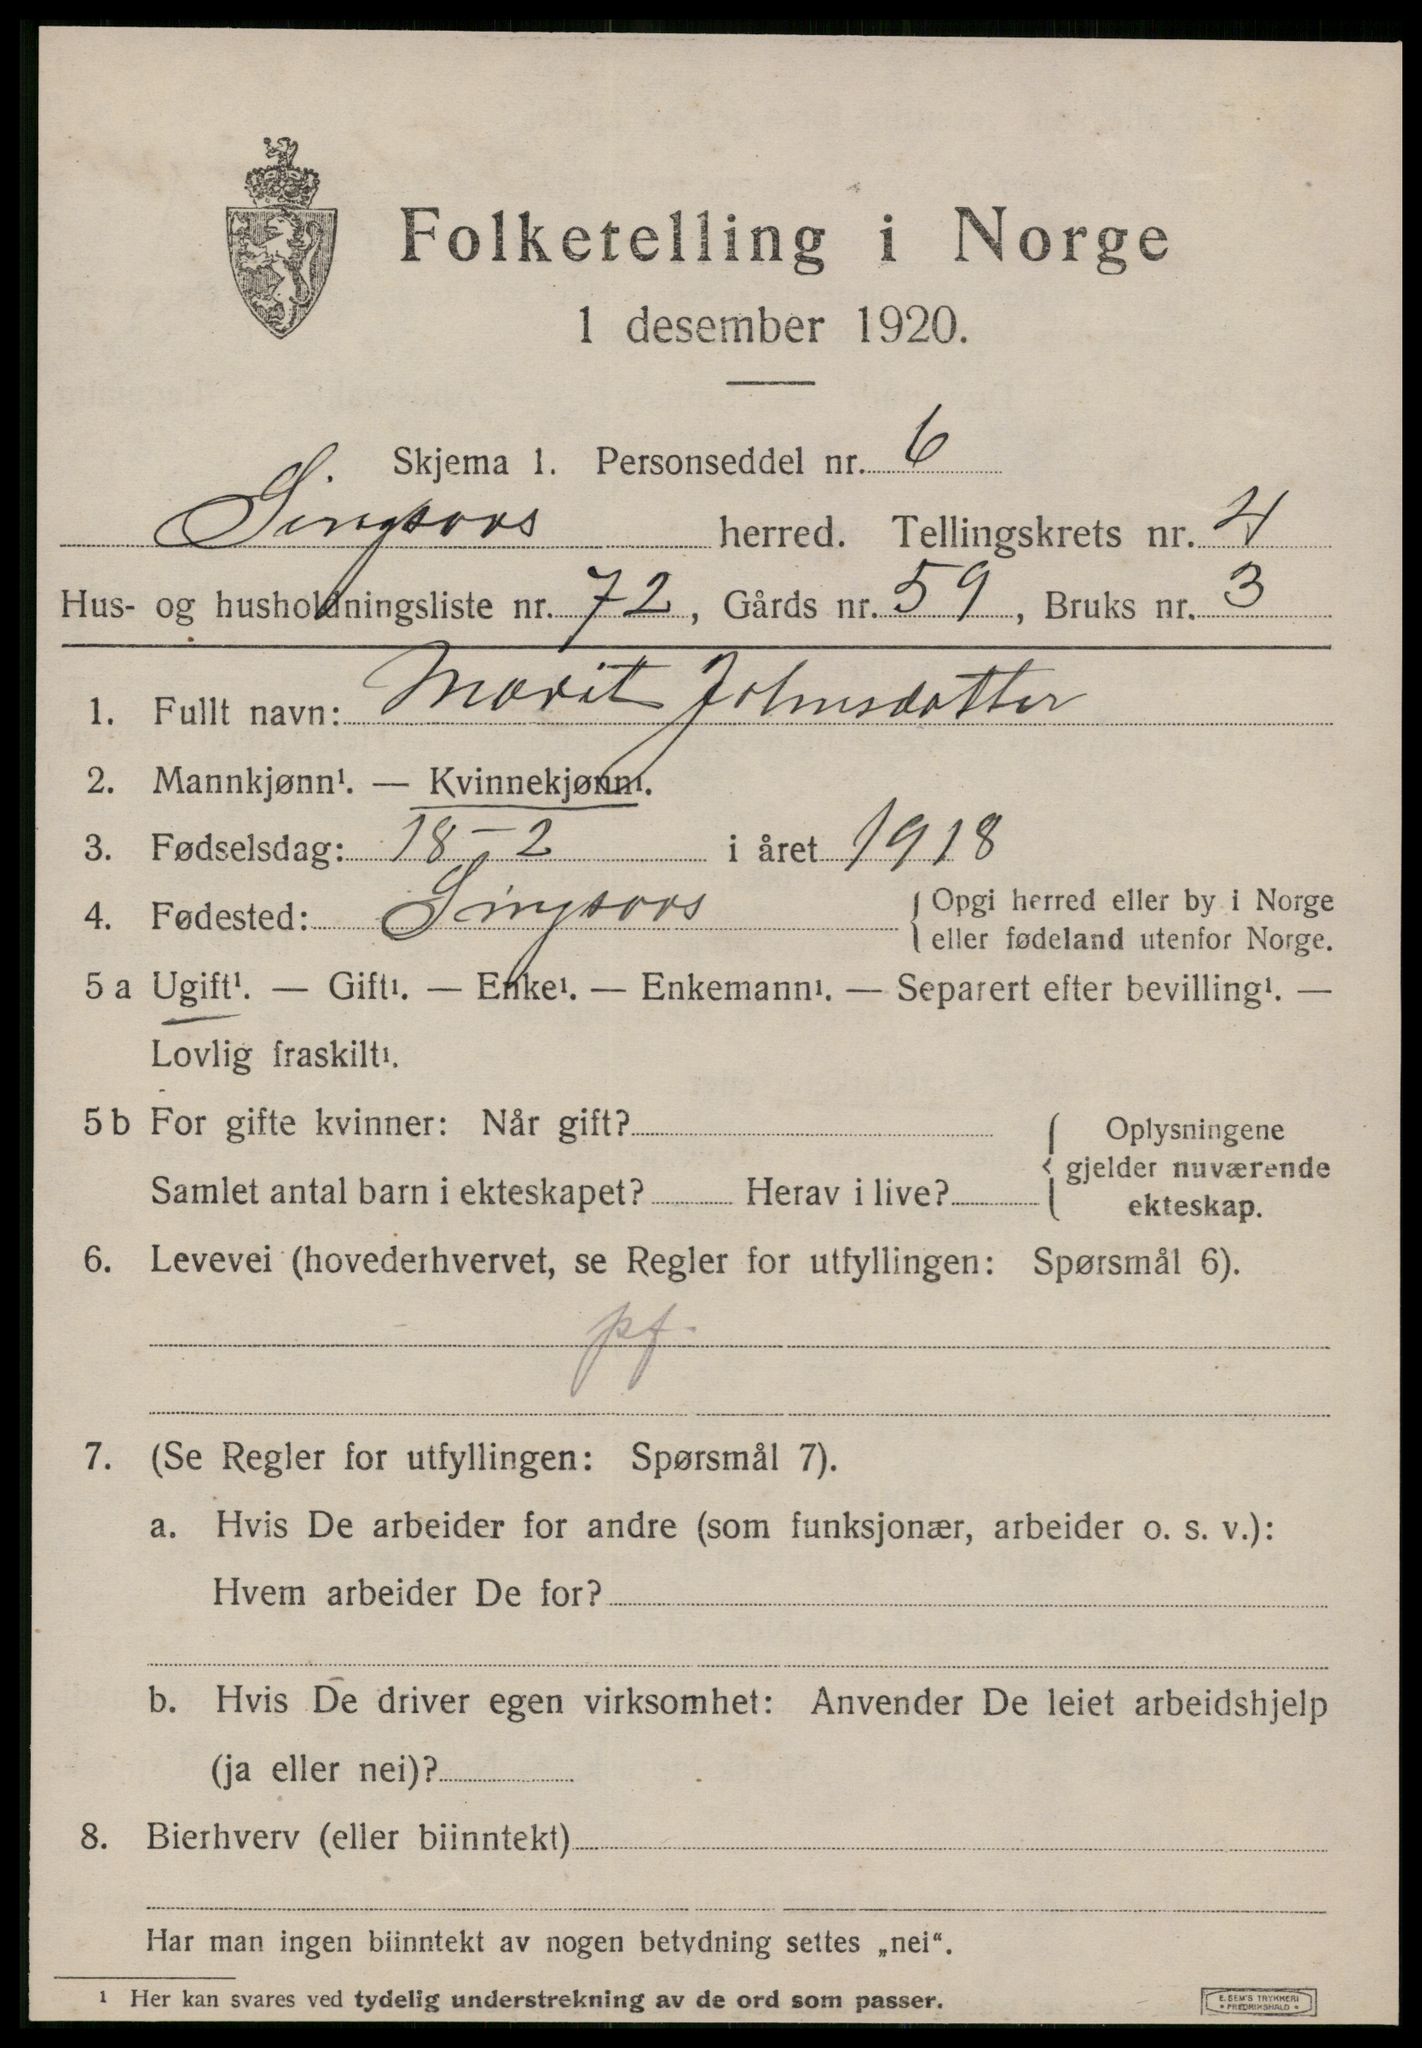 Folketelling i Norge
1 desember 1920.
Skjema 1. Personseddel nr. 6
Singsaas herred. Tellingskrets nr. 4
Hus- og husholdningsliste nr. 72, Gårds nr. 59, Bruks nr. 3
1. Fullt navn: Marit Johnsdatter
2. Mannkjønn¹. — Kvinnekjønn¹.
3. Fødselsdag: 18-2 i året 1918
4. Fødested: Singsaas { Opgi herred eller by i Norge
eller fødeland utenfor Norge.
5 a Ugift¹. — Gift¹. — Enke¹. — Enkemann¹. — Separert efter bevilling¹. —
Lovlig fraskilt¹.
5 b For gifte kvinner: Når gift? { Oplysningene
gjelder nuværende
Samlet antal barn i ekteskapet? Herav i live?
ekteskap.
6. Levevei (hovederhvervet, se Regler for utfyllingen: Spørsmål 6).
pf.
7. (Se Regler for utfyllingen: Spørsmål 7).
a. Hvis De arbeider for andre (som funksjonær, arbeider o. s. v.):
Hvem arbeider De for?
b. Hvis De driver egen virksomhet: Anvender De leiet arbeidshjelp
(ja eller nei)?
8. Bierhverv (eller biinntekt)
Har man ingen biinntekt av nogen betydning settes „nei“.
¹ Her kan svares ved tydelig understrekning av de ord som passer.
E. SEM'S TRYKKERI
• FREDRIKSHALD •